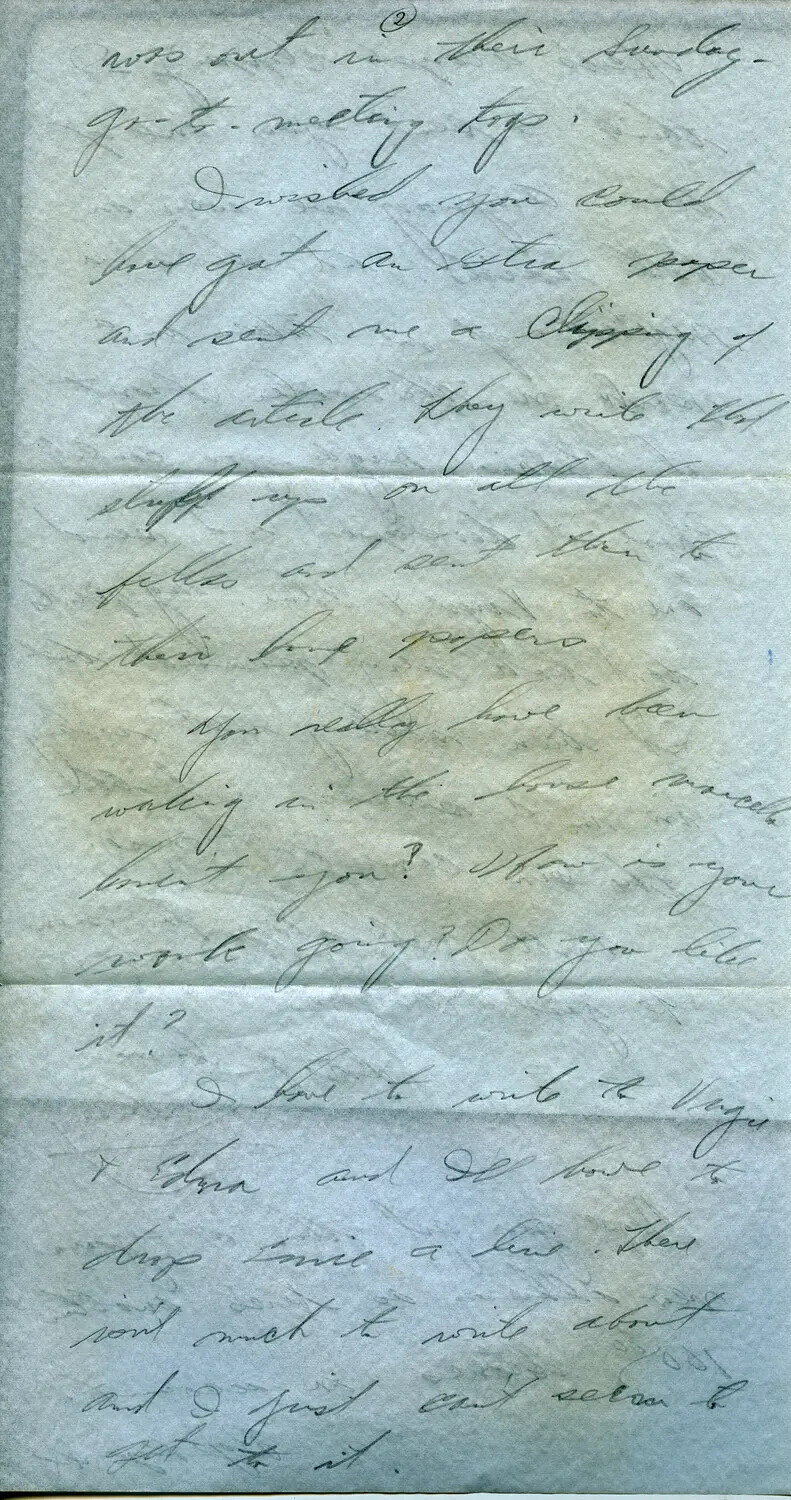 ②
was out in their Sunday-
go-to-meeting togs.
I wished you could
have got an extra paper
and sent me a Clipping of
the article. they write that
stuff up on all the
fellas and sent them to
their home papers
You really have been
working in the house
haven't you? How is your
work going? Do you like
it?
I have to write to Virgie
& Edna and I'll have to
drop Ernie a line. There
isn't much to write about
and I just can't seem to
get to it.